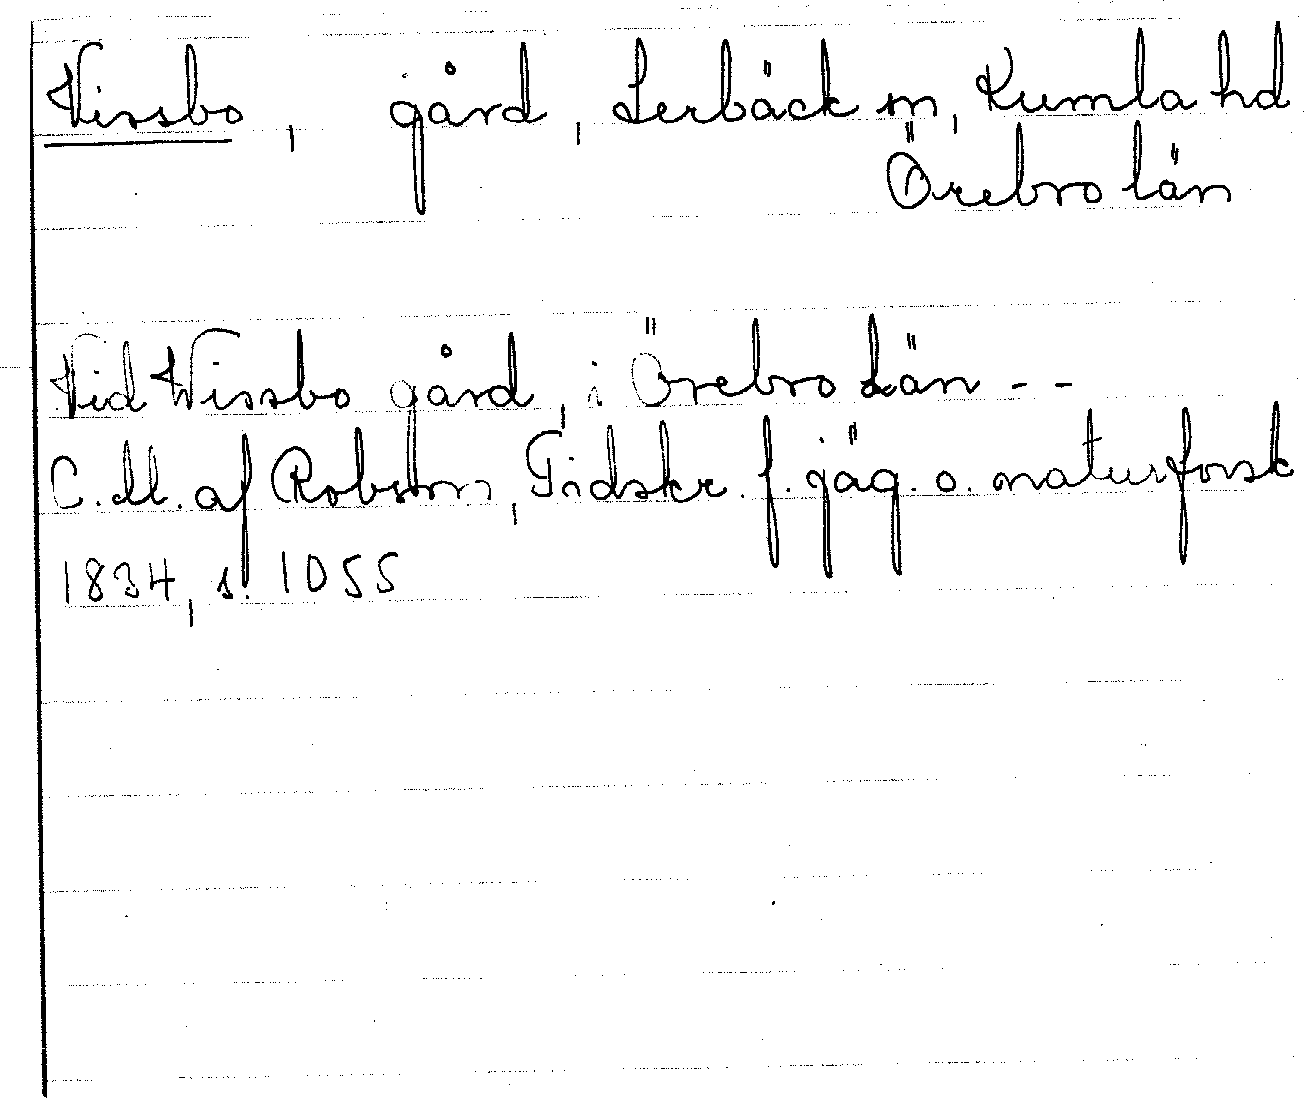 Vissbo, gård, Lerbäck sn, Kumla hd
Örebro län
Vid Wissbo gård, i Örebro Län - -
C. M. af Robson, Tidskr. f. jäg. o. naturforsk
1834, s. 1055